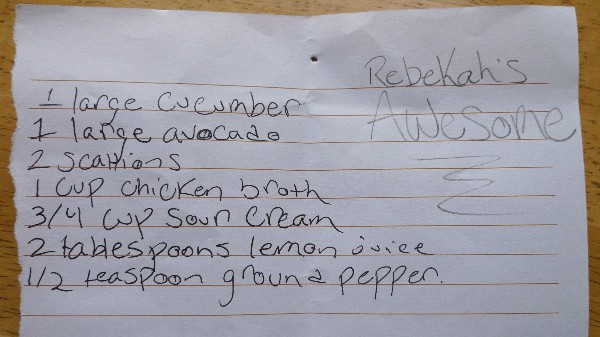 Rebekah's
Awesome
1 large cucumber
1 large avocado
2 scallions
1 cup chicken broth
3/4 cup sour cream
2 tablespoons lemon juice
1/2 teaspoon ground pepper.